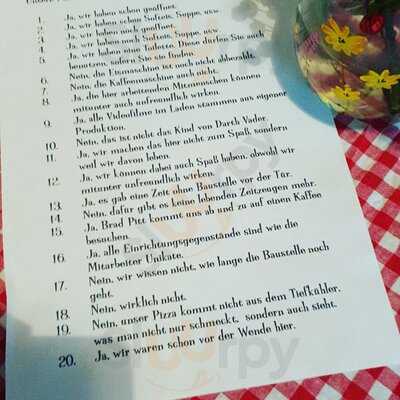 1. Ja, wir haben schon geöffnet.
2. Ja, wir haben schon Softeis, Suppe, usw.
3. Ja, wir haben noch geöffnet.
4. Ja, wir haben noch Softeis, Suppe, usw.
5. Ja, wir haben eine Toilette. Diese dürfen Sie auch
benutzen, sofern Sie sie finden.
6. Nein, die Eismaschine ist noch nicht abbezahlt.
7. Nein, die Kaffeemaschine auch nicht.
8. Ja, die hier arbeitenden Menschen können
mitunter auch unfreundlich wirken.
9. Ja, alle Videofilme im Laden stammen aus eigener
Produktion.
10. Nein, das ist nicht das Kind von Darth Vader.
11. Ja, wir machen das hier nicht zum Spaß, sondern
weil wir davon leben.
12. Ja, wir können dabei auch Spaß haben, obwohl wir
mitunter unfreundlich wirken.
13. Ja, es gab eine Zeit ohne Baustelle vor der Tür.
14. Nein, dafür gibt es keine lebenden Zeitzeugen mehr.
15. Ja, Brad Pitt kommt uns ab und zu auf einen Kaffee
besuchen.
16. Ja, alle Einrichtungsgegenstände sind wie die
Mitarbeiter Unikate.
17. Nein, wir wissen nicht, wie lange die Baustelle noch
geht.
18. Nein, wirklich nicht.
19. Nein, unser Pizza kommt nicht aus dem Tiefkühler,
was man nicht nur schmeckt, sondern auch sieht.
20. Ja, wir waren schon vor der Wende hier.